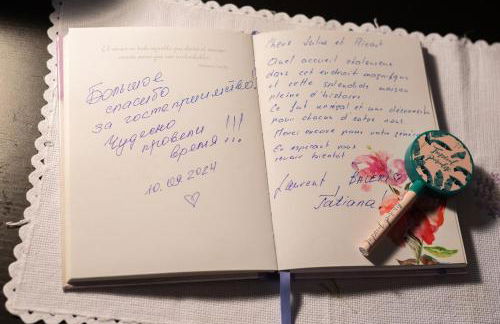 Большое
спасибо
за гостеприимство!
Чудесно
провели
время !!!
10.09.2024
Quel accueil chaleureux
dans cet endroit magnifique
et cette splendide maison
pleine d'histoire
Ce fut un régal et une découverte
pour chacun d'entre nous
Merci encore pour votre
En espérant vous
revoir bientôt
Laurent,
Tatiana!